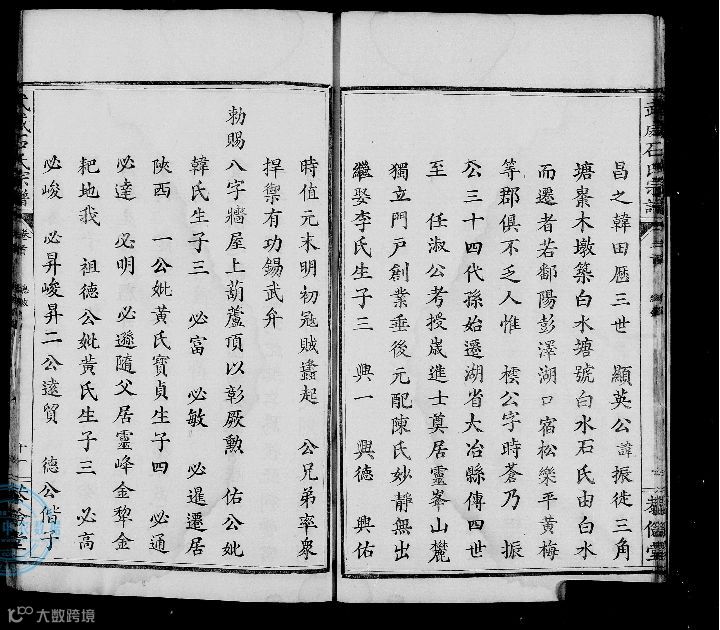 昌之韓田歷三世　顯英公諱振徙三角
塘寨木墩築白水塘號白水石氏由白水
而遷者若鄱陽彭澤湖口宿松樂平黃梅
等郡俱不乏人惟　櫄公字時蒼乃　振
公三十四代孫始遷湖省大冶縣傳四世
至　任淑公考授歲進士奠居靈峯山麓
獨立門戶創業垂後元配陳氏妙靜無出
繼娶李氏生子三　興一　興德　興佑
時值元末明初冦賊蠭起　公兄弟率衆
捍禦有功錫武弁
勅賜八字牆屋上葫蘆頂以彰厥勲　佑公妣
韓氏生子三　必富　必敏　必暹遷居
陝西　一公妣黃氏寶貞生子四　必通
必達　必明　必遜隨父居靈峰金犂金
耙地我　祖德公妣黃氏生子三　必高
必峻　必昇峻昇二公遠貿　德公偕子
武威石氏宗譜
大数跨境